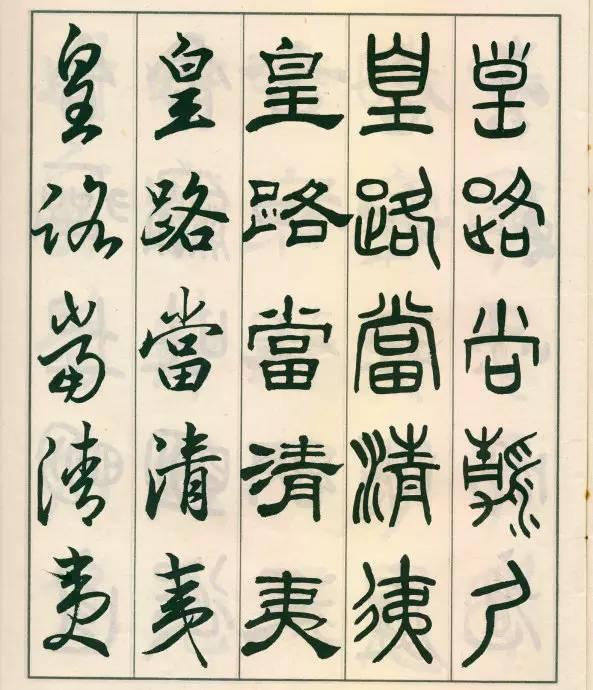 皇路當清夷
皇路當清夷
皇路當清夷
皇路當清夷
皇路當清夷